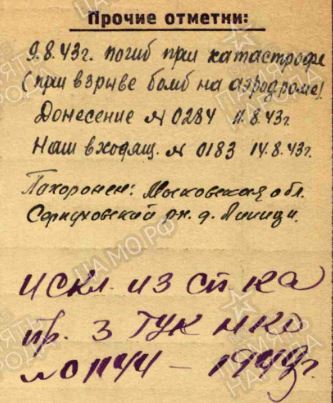 Прочие отметки:
9.8.43г. погиб при катастрофе
(при взрыве бомб на аэродроме).
Донесение № 0284 11.8.43г.
Наш входящ. № 0183 14.8.43г.
Похоронен: Московская обл.
Серпуховский рн. д. Липицы.
искл. из сп-ка
пр. 3 ГУК НКО
1944г.
ПАМЯТЬ НАРОДА
ЦАМО.РФ